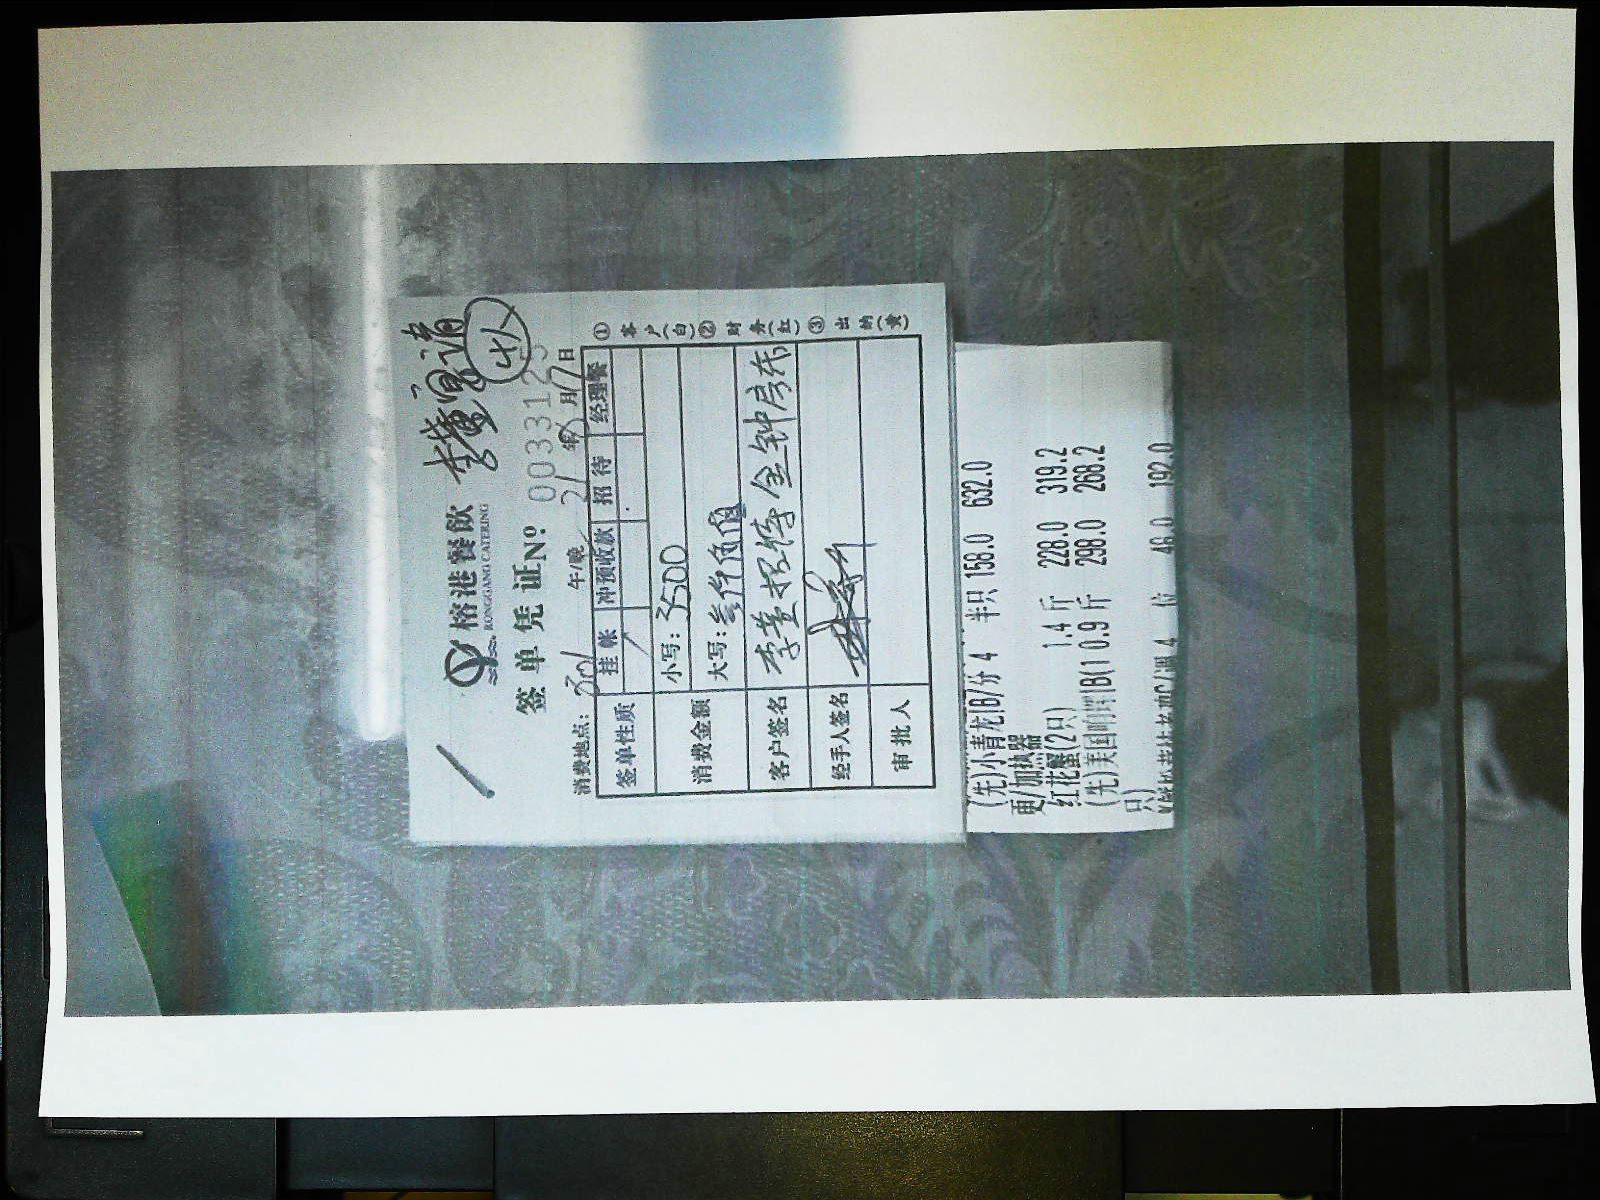 李董宴请
4人
榕港餐飲
RONGGANG CATERING
签单凭证 No 0033125
消费地点: 301 午/晚 21年 月17日
签单性质 挂帐 冲预收款 招待 经理餐
消费金额 小写: 3500
大写: 叁仟伍佰
客户签名 李董招待金钟房东
经手人签名
审批人
①客户(白)②财务(红)③出纳(黄)
(先)小青龙IB/分 4 半只 158.0 632.0
更/加热器
红花蟹(2只) 1.4 斤 228.0 319.2
(先)美国响螺IB(1 0.9 斤 298.0 268.2
只)
4 位 46.0 192.0